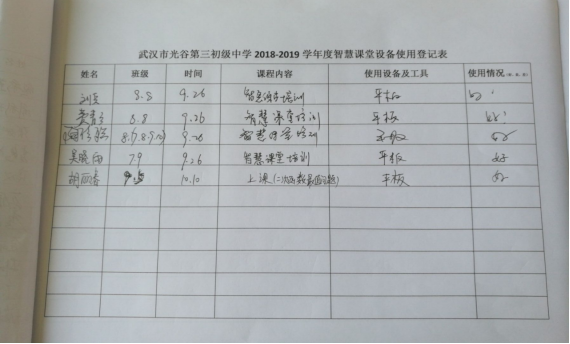 武汉市光谷第三初级中学 2018-2019 学年度智慧课堂设备使用登记表
姓名 班级 时间 课程内容 使用设备及工具 使用情况
8.5 9.26 智慧课堂培训 平板 好
8.8 9.26 智慧课堂培训 平板 好!
9.26 智慧课堂培训 平板 好
吴晓 7.9 9.26 智慧课堂培训 平板 好
胡丽 9.5 10.10 上课(二次函数最值问题) 平板 好